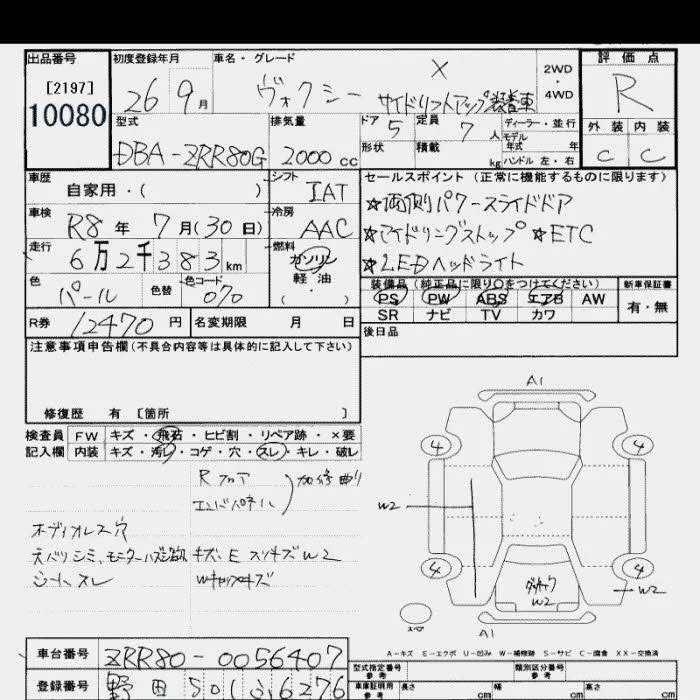 出品番号
[2197]
10080
初度登録年月
26 9月
車名・グレード
ヴォクシー X
サイドリフトアップ装着車
2WD
・
4WD
評価点
R
外装 内装
C C
型式
DBA-ZRR80G
排気量
2000cc
ドア 5
定員 7人
ディーラー・並行
モデル
年式 年
形状
積載 kg
ハンドル 左・右
車歴
自家用・( )
シフト
IAT
車検
R8年 7月(30日)
冷房
AAC
走行
6万2千383km
燃料
ガソリン
軽・油
( )
色
パール
色替
色コード
070
R券 12470円
名変期限 月 日
セールスポイント(正常に機能するものに限ります)
☆両側パワースライドドア
☆アイドリングストップ ☆ETC
☆LEDヘッドライト
装備品(純正品に限り○をつけてください)
PS PW ABS エアB AW
SR ナビ TV カワ
新車保証書
有・無
後日品
注意事項申告欄(不具合内容等は具体的に記入して下さい)
修復歴 有 [箇所 ]
検査員 FW キズ・飛石・ヒビ割・リペア跡・×要
記入欄 内装 キズ・汚レ・コゲ・穴・スレ・キレ・破レ
Rフロア
エンドパネル
加修曲り
ボディオレス穴
天バリシミ、モニターハズシ跡
キズ、E スリキズW2
シートスレ
A1
4
4
W2
4
4
W2
W2
A1
A-キズ E-エクボ U-凹み W-補修跡 S-サビ C-腐食 XX-交換済
車台番号 ZRR80-0056407
登録番号 野田501ふ6276
型式指定番号
参考
類別区分番号
参考
車庫証明用
参考
長さ cm 幅 cm 高さ cm